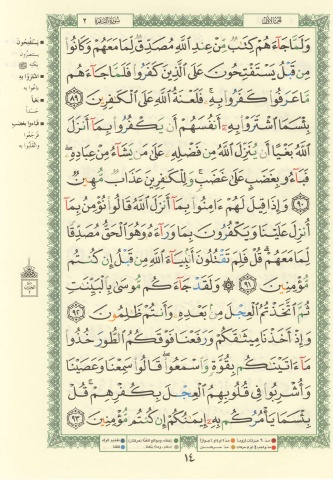 الجزء الأول
سورة البقرة
٢
وَلَمَّا جَآءَهُمْ كِتَٰبٌ مِّنْ عِندِ ٱللَّهِ مُصَدِّقٌ لِّمَا مَعَهُمْ وَكَانُوا۟
مِن قَبْلُ يَسْتَفْتِحُونَ عَلَى ٱلَّذِينَ كَفَرُوا۟ فَلَمَّا جَآءَهُم
مَّا عَرَفُوا۟ كَفَرُوا۟ بِهِۦ ۚ فَلَعْنَةُ ٱللَّهِ عَلَى ٱلْكَٰفِرِينَ ٨٩
بِئْسَمَا ٱشْتَرَوْا۟ بِهِۦٓ أَنفُسَهُمْ أَن يَكْفُرُوا۟ بِمَآ أَنزَلَ
ٱللَّهُ بَغْيًا أَن يُنَزِّلَ ٱللَّهُ مِن فَضْلِهِۦ عَلَىٰ مَن يَشَآءُ مِنْ عِبَادِهِۦ ۖ
فَبَآءُو بِغَضَبٍ عَلَىٰ غَضَبٍ ۚ وَلِلْكَٰفِرِينَ عَذَابٌ مُّهِينٌ
٩٠ وَإِذَا قِيلَ لَهُمْ ءَامِنُوا۟ بِمَآ أَنزَلَ ٱللَّهُ قَالُوا۟ نُؤْمِنُ بِمَآ
أُنزِلَ عَلَيْنَا وَيَكْفُرُونَ بِمَا وَرَآءَهُۥ وَهُوَ ٱلْحَقُّ مُصَدِّقًا
لِّمَا مَعَهُمْ ۗ قُلْ فَلِمَ تَقْتُلُونَ أَنۢبِيَآءَ ٱللَّهِ مِن قَبْلُ إِن كُنتُم
مُّؤْمِنِينَ ٩١ ۞ وَلَقَدْ جَآءَكُم مُّوسَىٰ بِٱلْبَيِّنَٰتِ
ثُمَّ ٱتَّخَذْتُمُ ٱلْعِجْلَ مِنۢ بَعْدِهِۦ وَأَنتُمْ ظَٰلِمُونَ ٩٢
وَإِذْ أَخَذْنَا مِيثَٰقَكُمْ وَرَفَعْنَا فَوْقَكُمُ ٱلطُّورَ خُذُوا۟
مَآ ءَاتَيْنَٰكُم بِقُوَّةٍ وَٱسْمَعُوا۟ ۖ قَالُوا۟ سَمِعْنَا وَعَصَيْنَا
وَأُشْرِبُوا۟ فِى قُلُوبِهِمُ ٱلْعِجْلَ بِكُفْرِهِمْ ۚ قُلْ
بِئْسَمَا يَأْمُرُكُم بِهِۦٓ إِيمَٰنُكُمْ إِن كُنتُم مُّؤْمِنِينَ ٩٣
يستفتحون
يستنصرون
اشتروا به
بغياً
حسداً
فباءوا بغضب
١٤